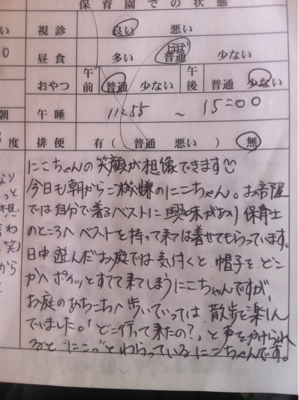 保育園での状態
視診 良い 悪い
昼食 多い 普通 少ない
おやつ 午前 普通 少ない 午後 普通 少ない
午睡 11:55 ~ 15:00
排便 有(普通 悪い) 無
にこちゃんの笑顔が想像できます
今日も朝からご機嫌のにこちゃん。お部屋
では自分で着るベストに興味があり保育士
のところへベストを持って来ては着せてもらっています。
日中遊んだお庭では気付くと帽子をどこ
かへポイッとすて来てしまうにこちゃんですが、
お庭のあちこちへ歩いていっては散歩を楽しん
でいました。"どこ行って来たの?"と声をかけられ
ると"にこっ"とわらっているにこちゃんです。